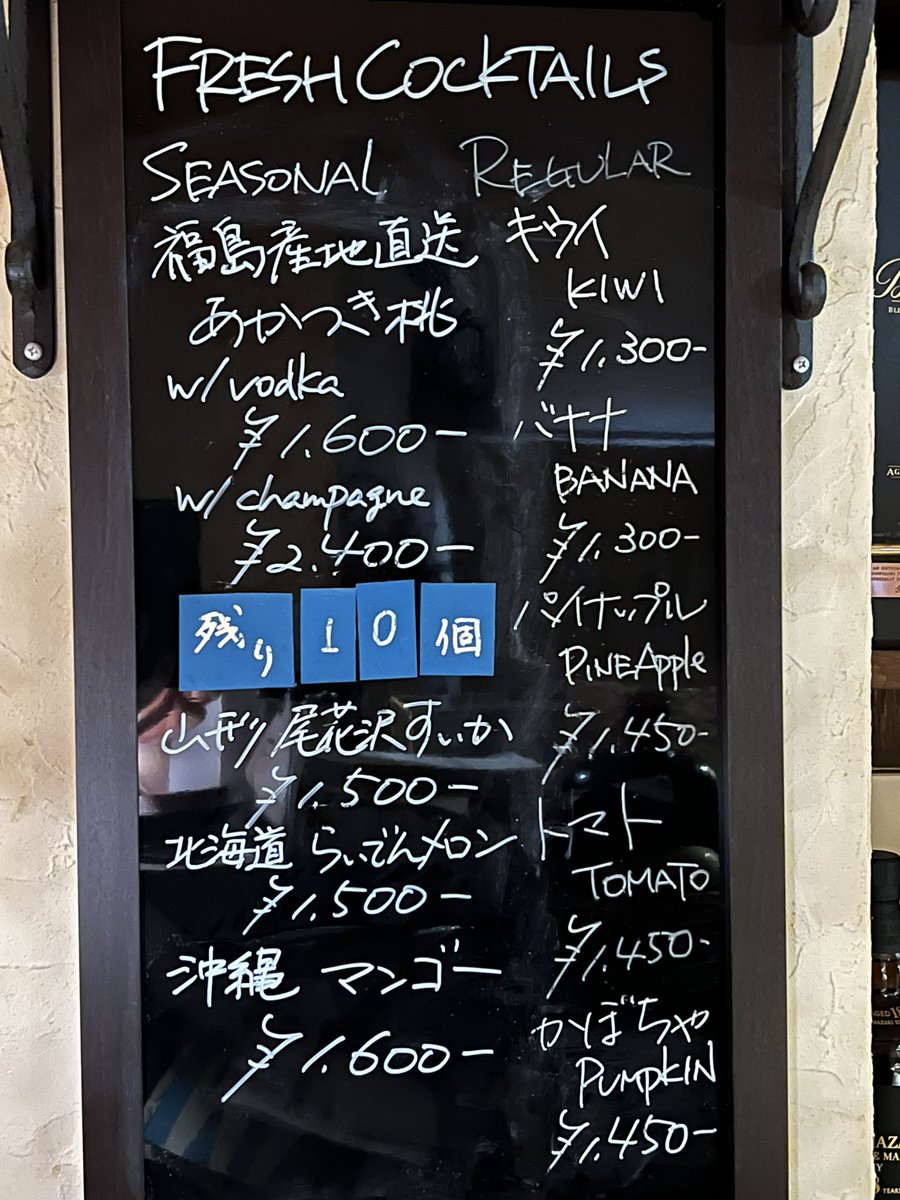 FRESH COCKTAILS
SEASONAL
福島産地直送
あかつき桃
w/vodka
¥1.600-
w/champagne
¥2.400-
残り 10 個
山形 尾花沢すいか
¥1.500-
北海道 らいでんメロン
¥1.500-
沖縄 マンゴー
¥1.600-
REGULAR
キウイ
KIWI
¥1.300-
バナナ
BANANA
¥1.300-
パイナップル
PINEApple
¥1.450-
トマト
TOMATO
¥1.450-
かぼちゃ
PUMPKIN
¥1.450-